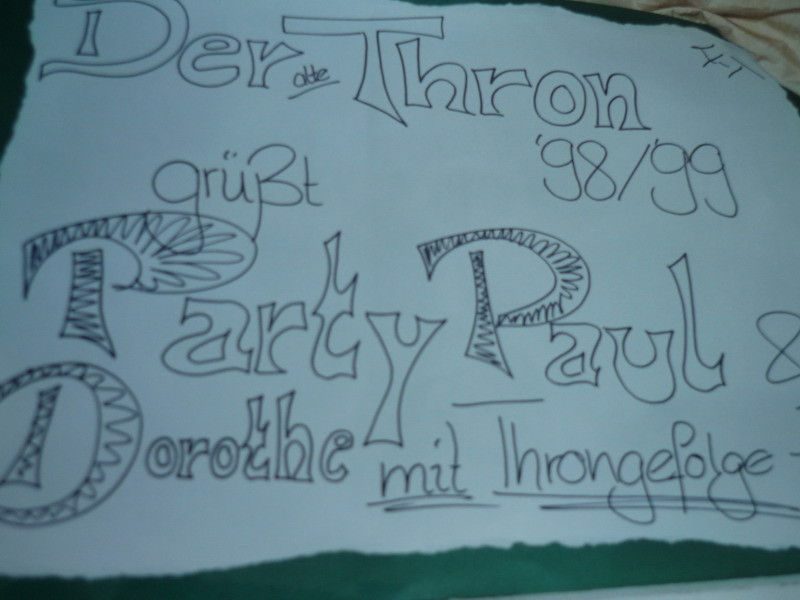 Der alte Thron
grüßt '98/'99
Party Paul &
Dorothe mit Throngefolge